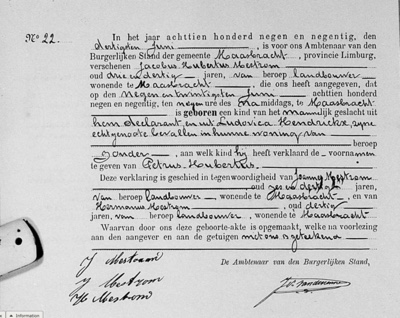 No 22.
In het jaar achttien honderd negen en negentig, den
dertigsten Juni, is voor ons Ambtenaar van den
Burgerlijken Stand der gemeente Maasbracht, provincie Limburg,
verschenen Jacobus Hubertus Mestrom
oud drie en dertig jaren, van beroep landbouwer
wonende te Maasbracht, die ons heeft aangegeven, dat
op den negen en twintigsten Juni achttien honderd
negen en negentig, ten negen ure des namiddags, te Maasbracht
is geboren een kind van het mannelijk geslacht uit
hem declarant, en uit Ludovica Hendrickx, zijne
echtgenoote bevallen in hunne woning van
beroep
zonder, aan welk kind hij heeft verklaard de voornamen
te geven van Petrus Hubertus.
Deze verklaring is geschied in tegenwoordigheid van Joannes Mestrom
, oud zes en dertig jaren,
van beroep landbouwer, wonende te Maasbracht, en van
Hermanus Mestrom, oud dertig
jaren, van beroep landbouwer, wonende te Maasbracht
Waarvan door ons deze geboorte-akte is opgemaakt, welke na voorlezing
aan den aangever en aan de getuigen met ons is geteekend
De Ambtenaar van den Burgerlijken Stand,
J Mestrom
J Mestrom
H Mestrom
Information